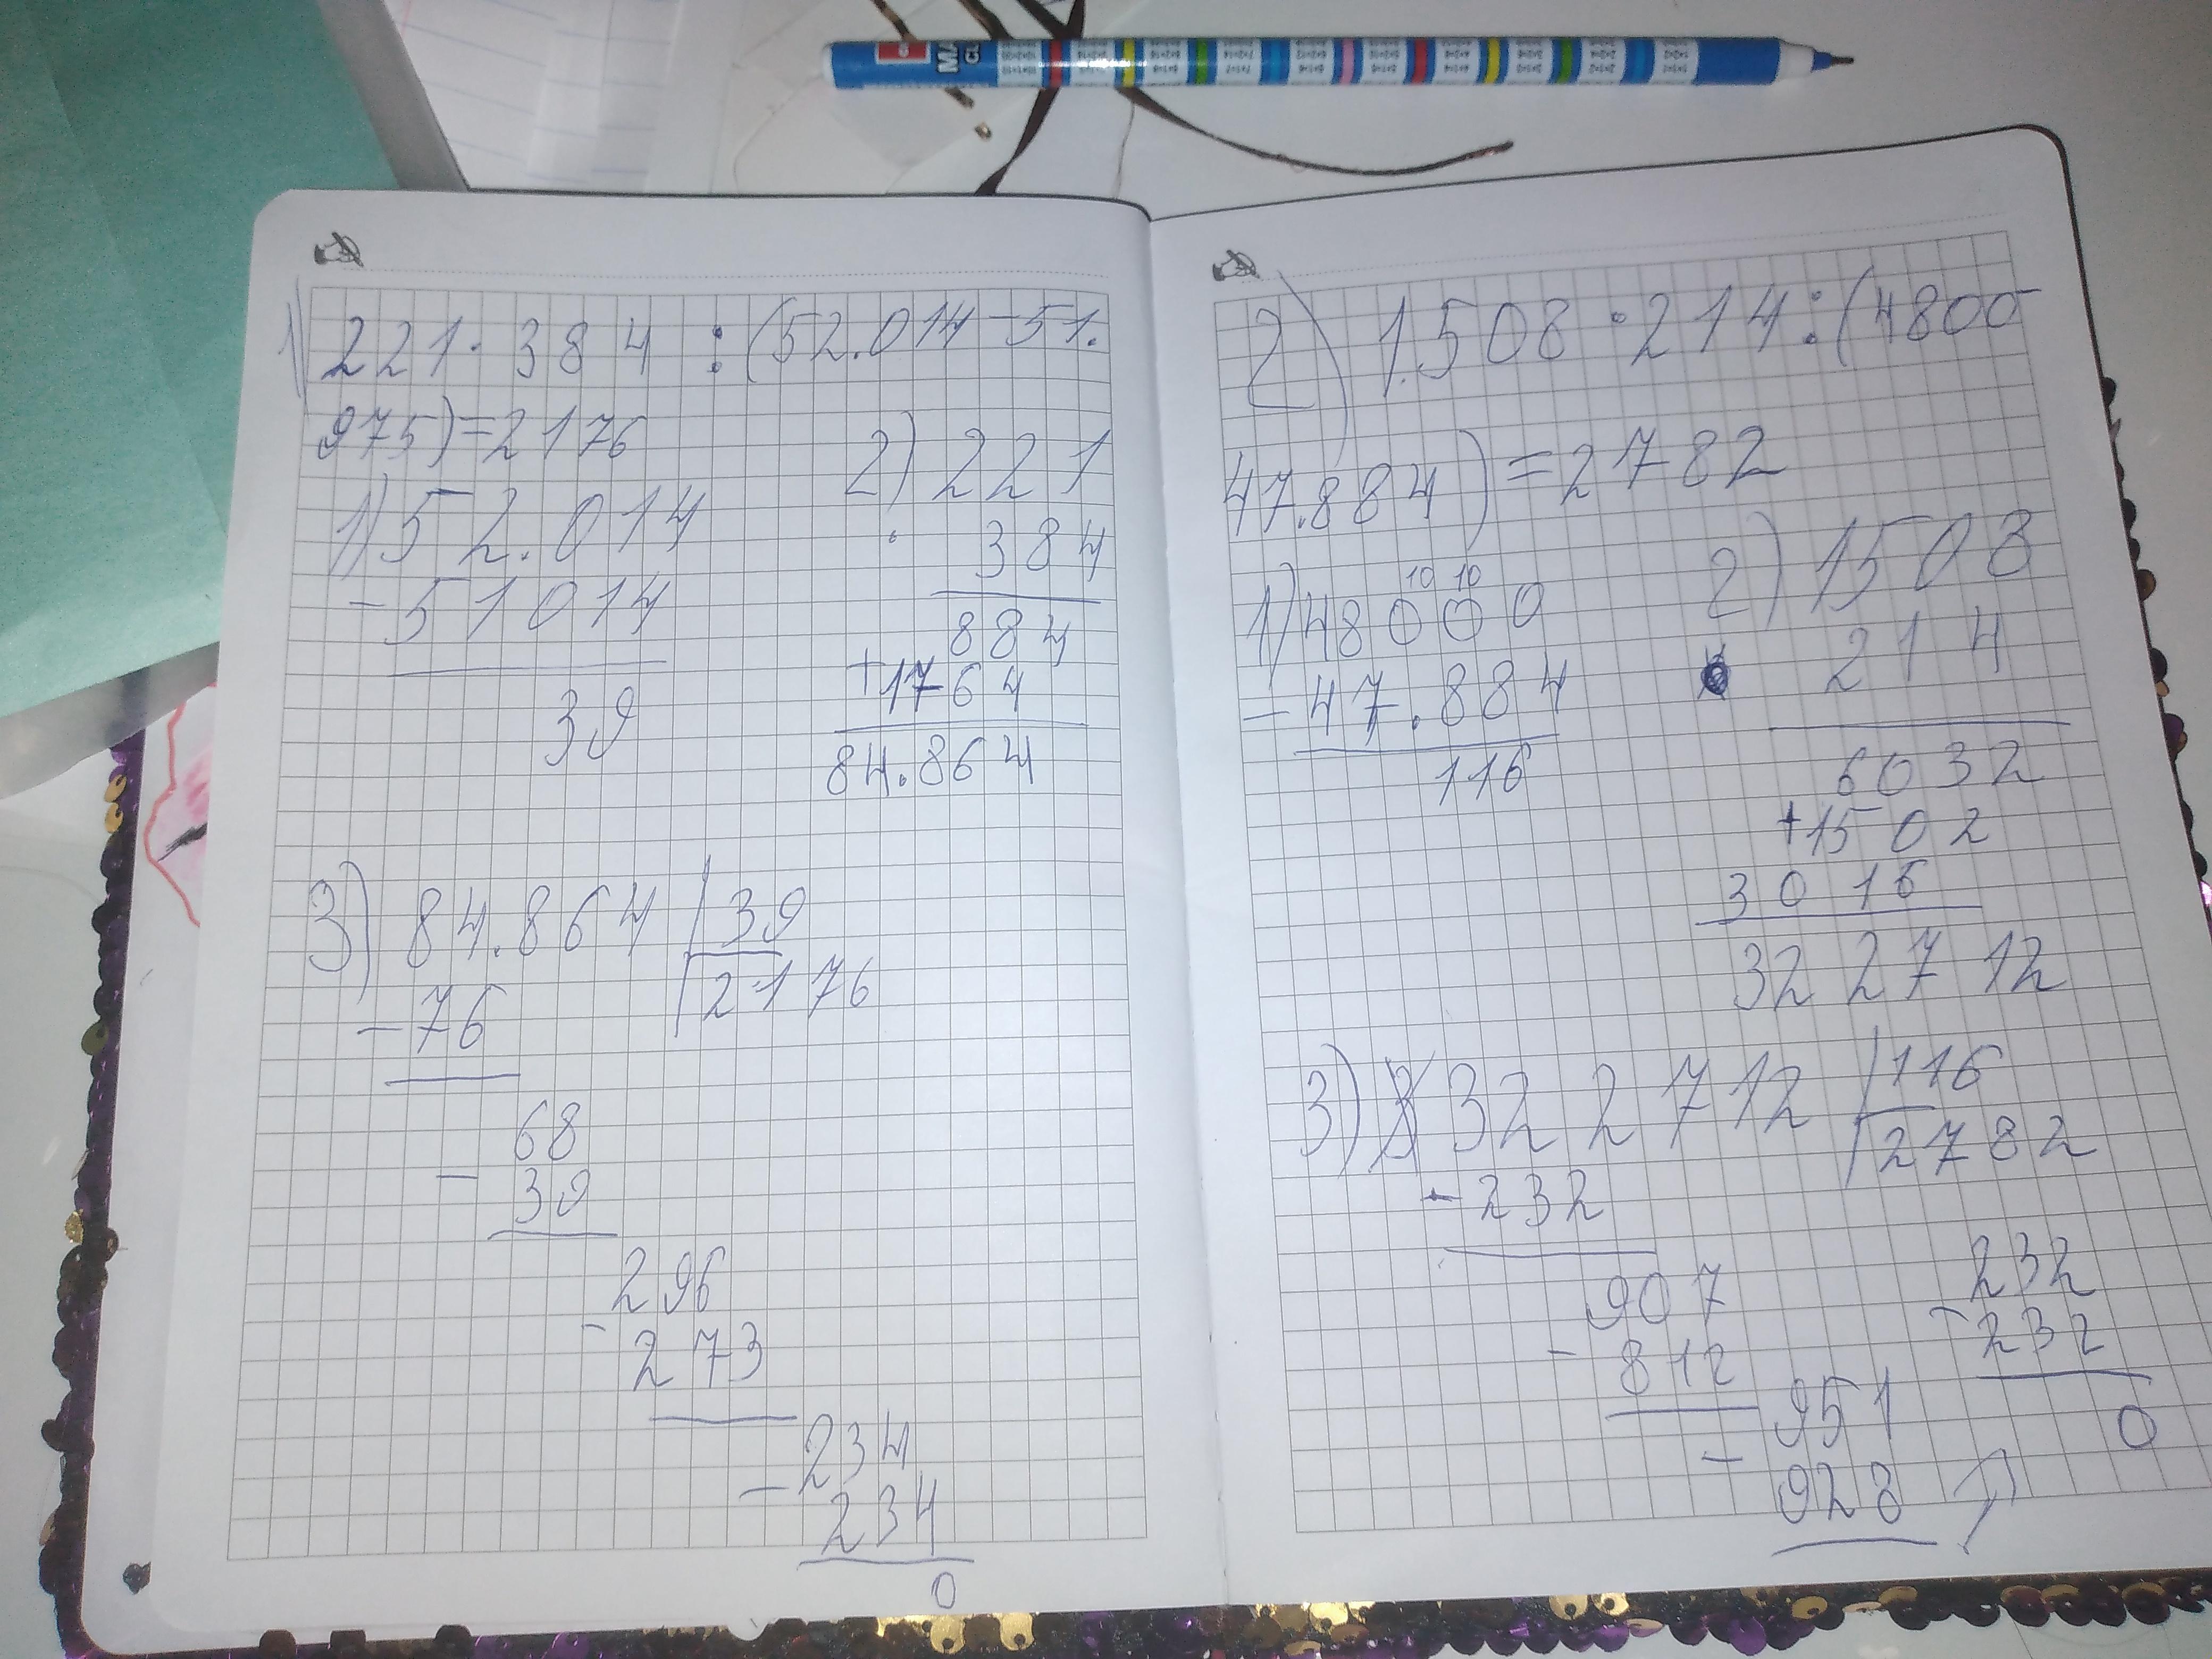 1) 221 · 384 : (52.014 - 51.
975) = 2176
1) 52.014
- 51014
39
2) 221
· 384
884
+ 1764
84.864
3) 84.864 | 39
- 76 | 2176
68
- 39
296
- 273
234
- 234
0
2) 1.508 · 214 : (4800 -
47.884) = 2782
1) 48000
10 10
- 47.884
116
2) 1508
214
6032
+ 1502
3016
322712
3) 322712 | 116
- 232 | 2782
907
- 812
951
- 928
232
- 232
0